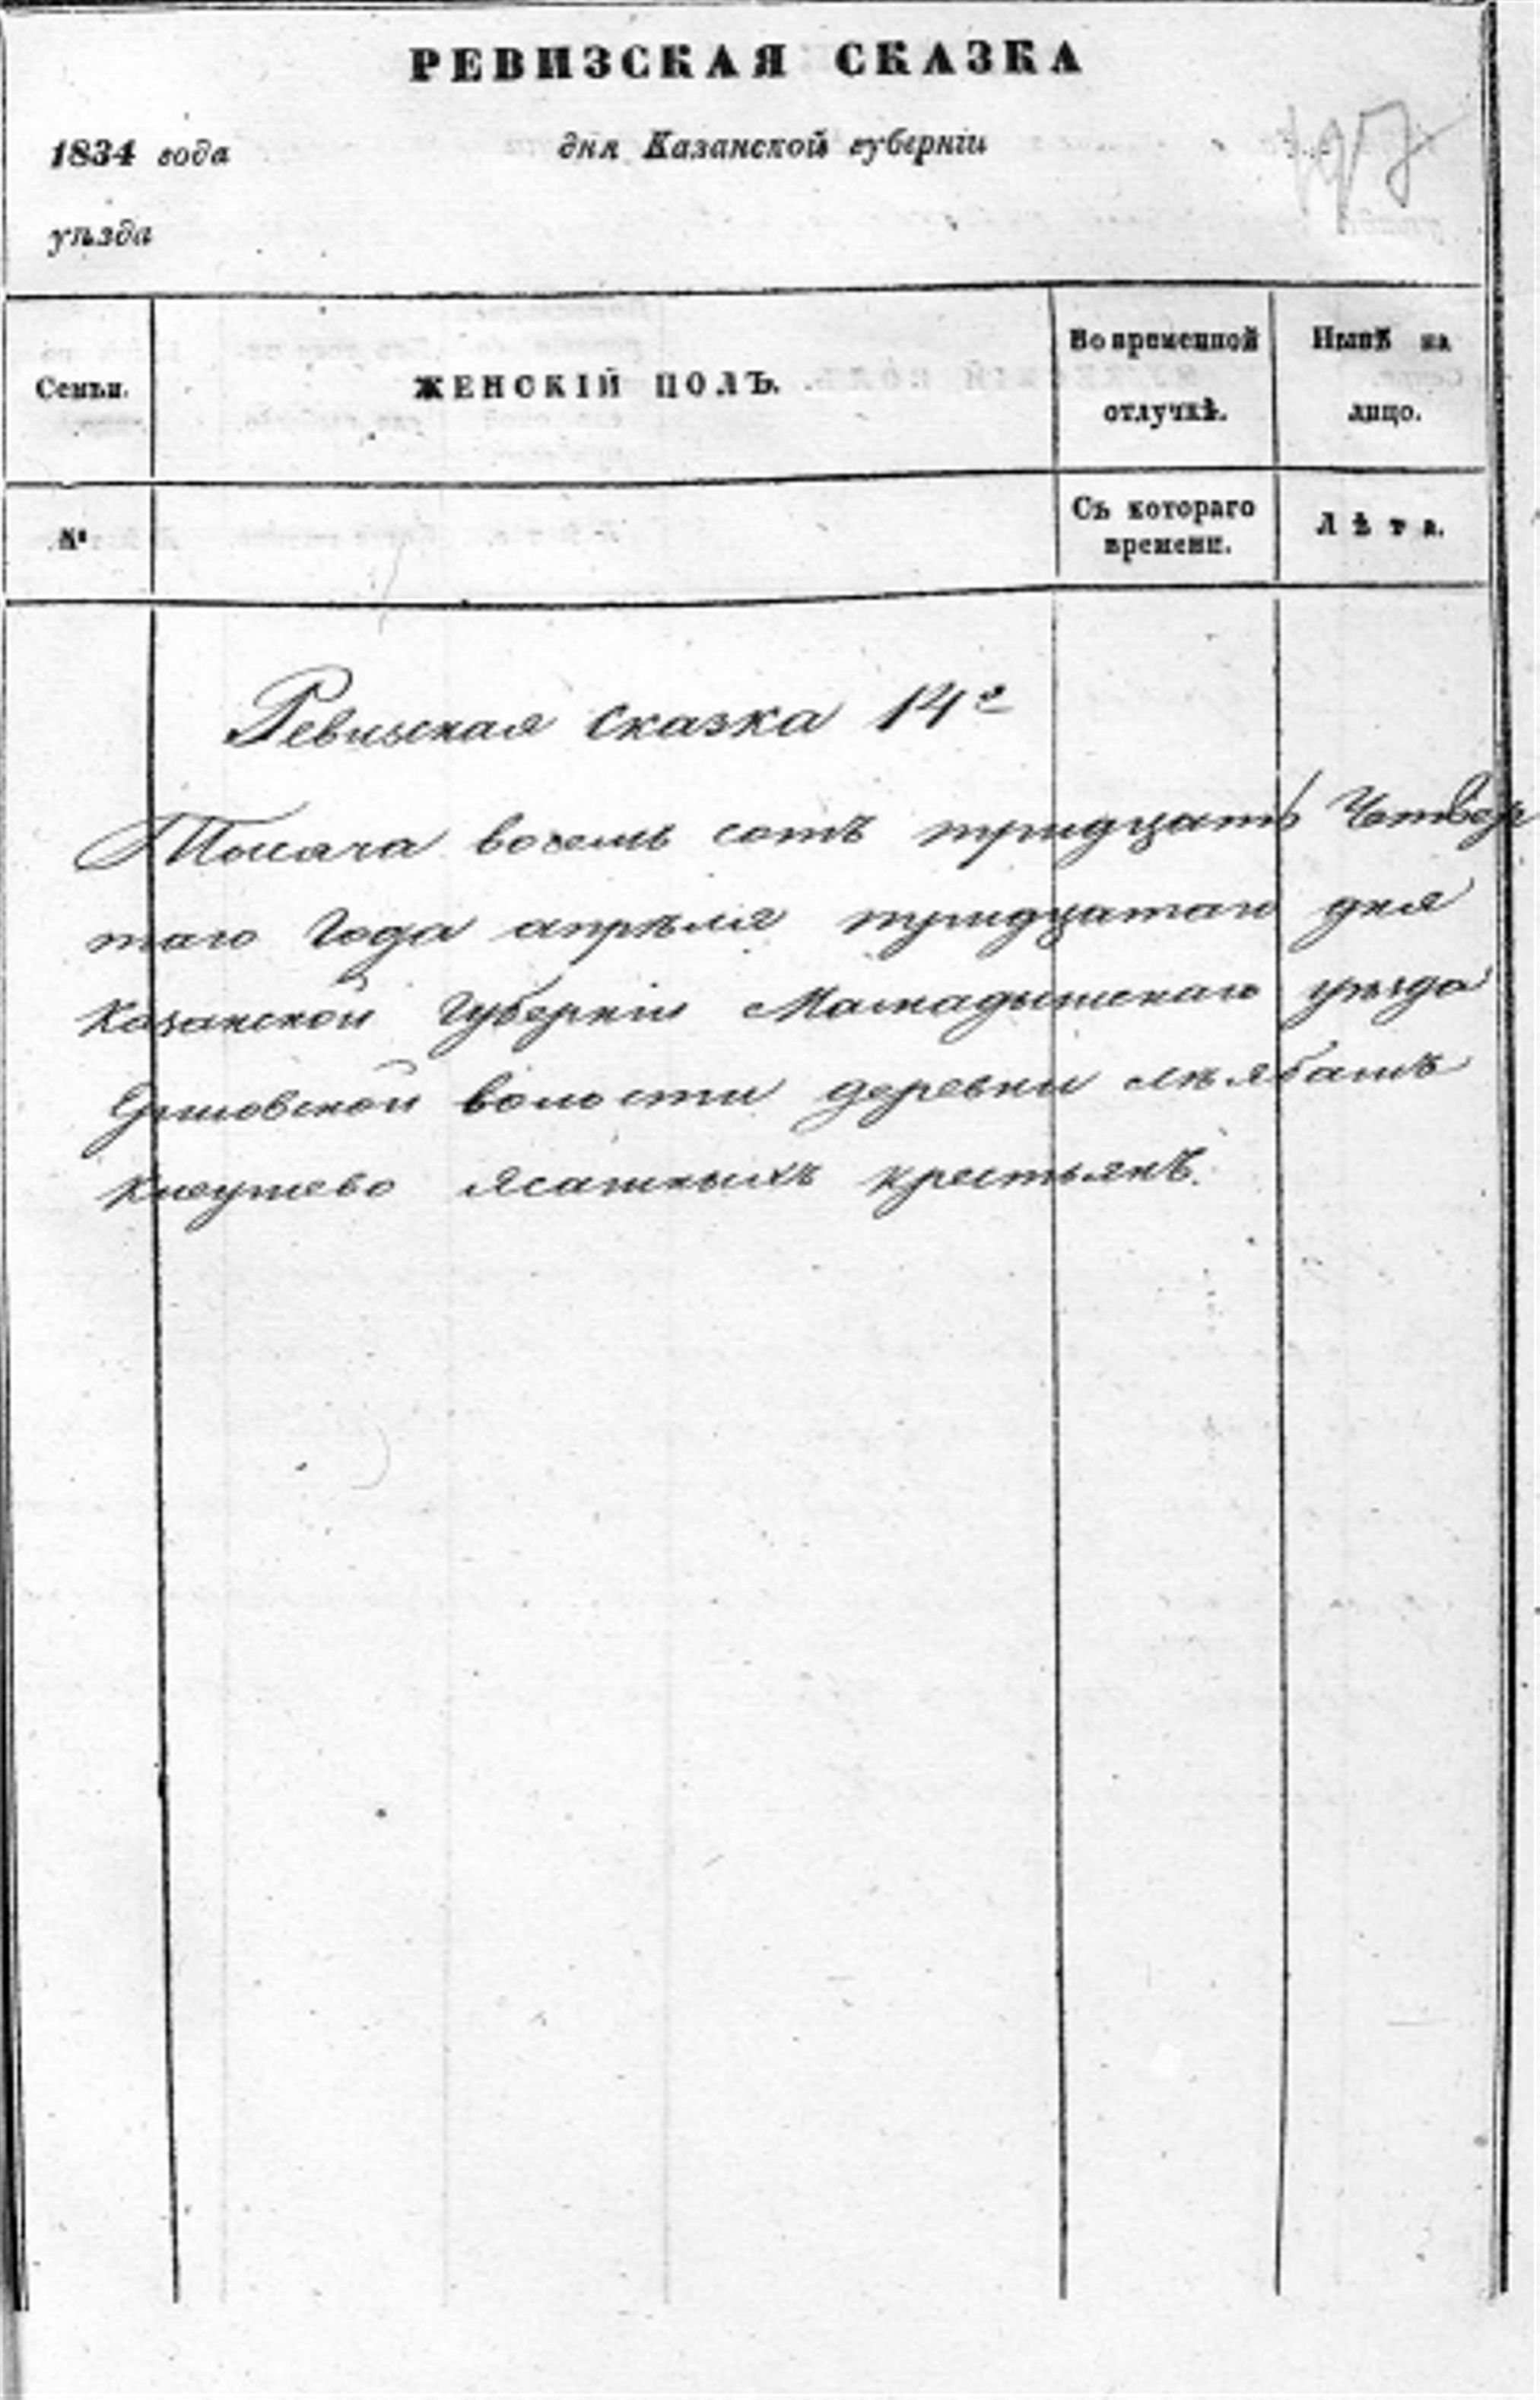 РЕВИЗСКАЯ СКАЗКА
1834 года дня Казанской губерніи
уѣзда
Семьи. ЖЕНСКІЙ ПОЛЪ. Во временной отлучкѣ. Нынѣ на лицо.
№ Съ котораго времени. Лѣта.
Ревизская сказка 14я
Тысяча восемь сотъ тридцать Четвер
таго Года апрѣля тридцатаго дня
Казанской Губерніи Мамадышскаго уѣзда
волости деревни
ясашныхъ крестьянъ.